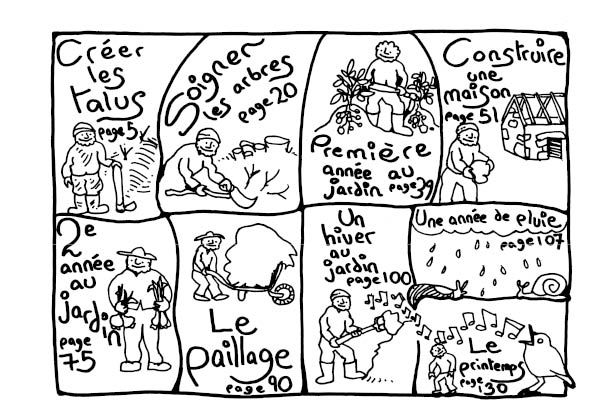 Créer
les
talus
page 5
Soigner
les arbres
page 20
Première
année au
jardin page 39
Construire
une
maison
page 51
2e
année
au
jardin
page
75
Le
paillage
page 90
Un
hiver
au
jardin
page 100
Une année de pluie
page 107
Le
printemps
page 30